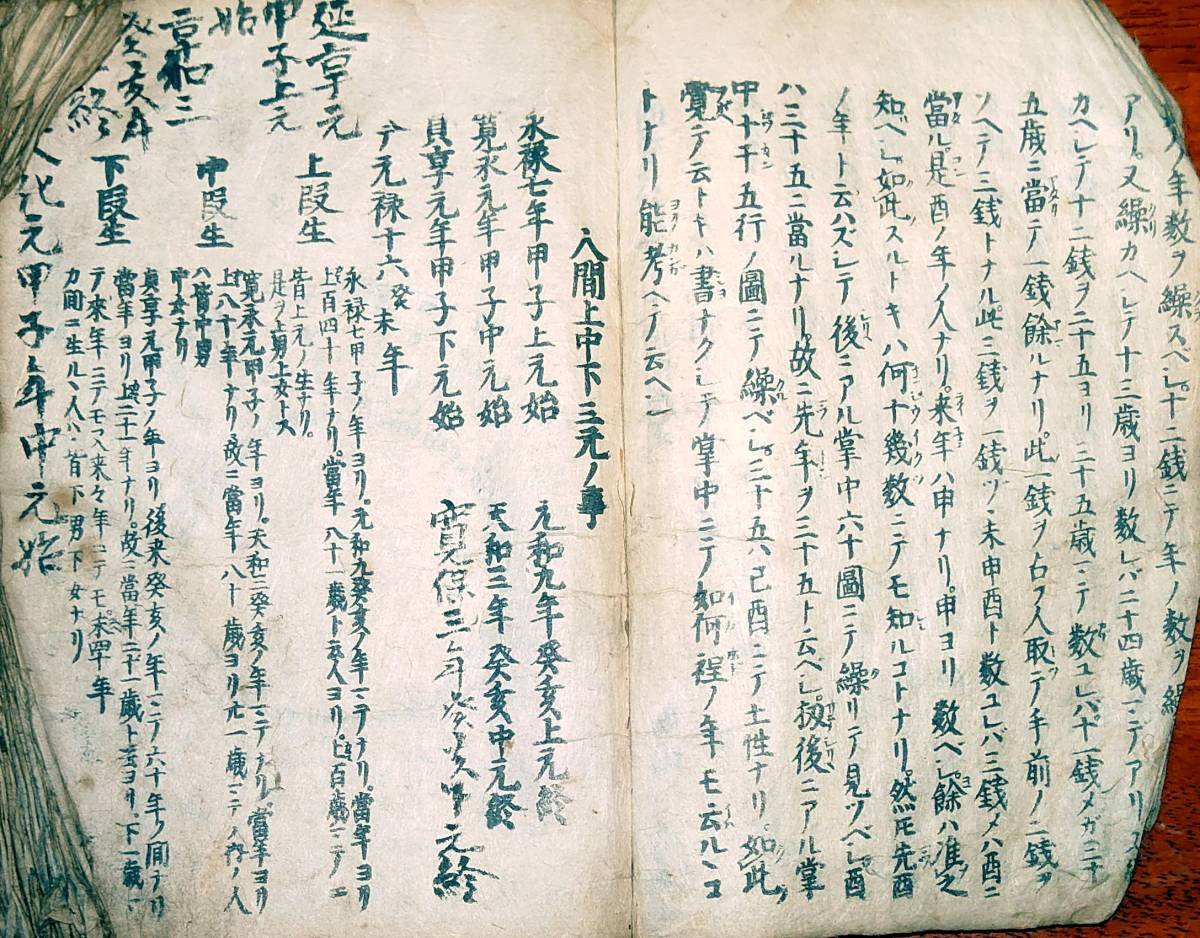 ノ年数ヲ繰スベシ。十二銭ニテ年ノ数ヲ繰
アリ。又繰カヘシテ十三歳ヨリ数レバ二十四歳マデアリ
カヘシテ十二銭ヲ二十五ヨリ三十五歳マデ数ユレバ、十一銭メガ三十
五歳ニ當テ一銭餘ルナリ。此一銭ヲ占フ人取テ手前ノ二銭ヲ
ソヘテ三銭トナル。此三銭ヲ一銭ヅヽ未申酉ト数ユレバ三銭メハ酉ニ
當ル。是酉ノ年ノ人ナリ。来年ハ申ナリ。申ヨリ数ベシ。餘ハ准之
知ベシ。如此スルトキハ何十幾数ニテモ知ルコトナリ。然トモ先酉
ノ年ト云ハズシテ後ニアル掌中六十圖ニテ繰リテ見ツベシ。酉
ハ三十五ニ當ルナリ。故ニ先年ヲ三十五ト云ベシ。扨後ニアル掌
中十干五行ノ圖ニテ繰ベシ。三十五ハ己酉ニテ土性ナリ。如此
覚テ云トキハ書ナクシテ掌中ニテ如何程ノ年モ云ルヽコ
トナリ能考ヘテ云ヘシ
人間上中下三元ノ事
永禄七年甲子上元始 元和九年癸亥上元終
寛永元年甲子中元始 天和三年癸亥中元終
貞享元年甲子下元始 寛保三年癸亥下元終
テ元禄十六癸未年
上段生
永禄七甲子ノ年ヨリ。元和九癸亥ノ年マテナリ。當年ヨリ
上百四十年ナリ。當年八十一歳ト云人ヨリ。上百歳マテモ
皆上元ノ生ナリ。
是ヲ上男上女トス
中段生
寛永元甲子ノ年ヨリ。天和三癸亥ノ年マテナリ。當年ヨリ
上八十年ナリ故ニ當年八十歳ヨリ廿一歳マテノ人
ハ皆中男
中女ナリ
下段生
貞享元甲子ノ年ヨリ後来癸亥ノ年マテ六十年ノ間ナリ
當年ヨリ上二十一年ナリ。故ニ當年二十一歳ト云ヨリ。下一歳
テ来年ニテモ又来々年ニテモ。末四十年
カ間ニ生ルヽ人ハ。皆下男下女ナリ
延享元
甲子上元
始
享和三
癸亥年
終
文化元甲子年中元始